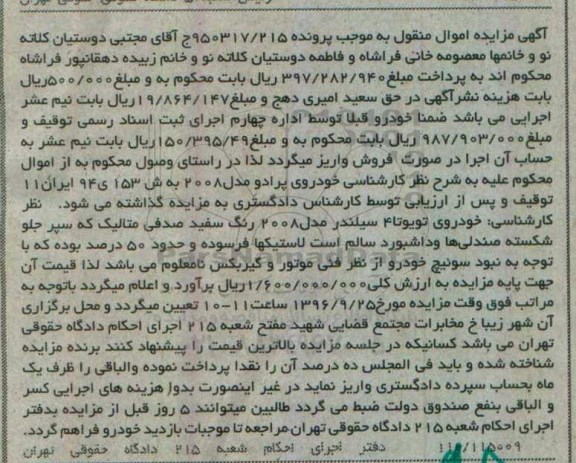 آگهی مزایده اموال منقول به موجب پرونده ۹۵۰۳۱۷/۲۱۵ج آقای مجتبی دوستیان کلاته
نو و خانمها معصومه خانی فراشاه و فاطمه دوستیان کلاته نو و خانم زبیده دهقانپور فراشاه
محکوم اند به پرداخت مبلغ۳۹۷/۲۸۲/۹۴۰ ریال بابت محکوم به و مبلغ۵۰۰/۰۰۰ریال
بابت هزینه نشرآگهی در حق سعید امیری دهج و مبلغ۱۹/۸۶۴/۱۴۷ریال بابت نیم عشر
اجرایی می باشد ضمنا خودرو قبلا توسط اداره چهارم اجرای ثبت اسناد رسمی توقیف و
مبلغ۹۸۷/۹۰۳/۰۰۰ ریال بابت محکوم به و مبلغ۱۵۰/۳۹۵/۴۹ریال بابت نیم عشر به
حساب آن اجرا در صورت فروش واریز میگردد لذا در راستای وصول محکوم به از اموال
محکوم علیه به شرح نظر کارشناسی خودروی پرادو مدل۲۰۰۸ به ش ۱۵۳ ی۹۴ ایران۱۱
توقیف و پس از ارزیابی توسط کارشناس دادگستری به مزایده گذاشته می شود. نظر
کارشناسی: خودروی تویوتا۴ سیلندر مدل۲۰۰۸ رنگ سفید صدفی متالیک که سپر جلو
شکسته صندلی‌ها وداشبورد سالم است لاستیکها فرسوده و حدود ۵۰ درصد بوده که با
توجه به نبود سوئیچ خودرو از نظر فنی موتور و گیربکس نامعلوم می باشد لذا قیمت آن
جهت پایه مزایده به ارزش کلی۱/۶۰۰/۰۰۰/۰۰۰ریال برآورد و اعلام میگردد باتوجه به
مراتب فوق وقت مزایده مورخ۱۳۹۶/۹/۲۵ ساعت۱۱-۱۰ تعیین میگردد و محل برگزاری
آن شهر زیبا خ مخابرات مجتمع قضایی شهید مفتح شعبه ۲۱۵ اجرای احکام دادگاه حقوقی
تهران می باشد کسانیکه در جلسه مزایده بالاترین قیمت را پیشنهاد کنند برنده مزایده
شناخته شده و باید فی المجلس ده درصد آن را نقدا پرداخت نموده والباقی را ظرف یک
ماه بحساب سپرده دادگستری واریز نماید در غیر اینصورت بدوا هزینه های اجرایی کسر
و الباقی بنفع صندوق دولت ضبط می گردد طالبین میتوانند ۵ روز قبل از مزایده بدفتر
اجرای احکام شعبه ۲۱۵ دادگاه حقوقی تهران مراجعه تا موجبات بازدید خودرو فراهم گردد.
۱۱۰/۱۱۵۰۰۹ دفتر اجرای احکام شعبه ۲۱۵ دادگاه حقوقی تهران